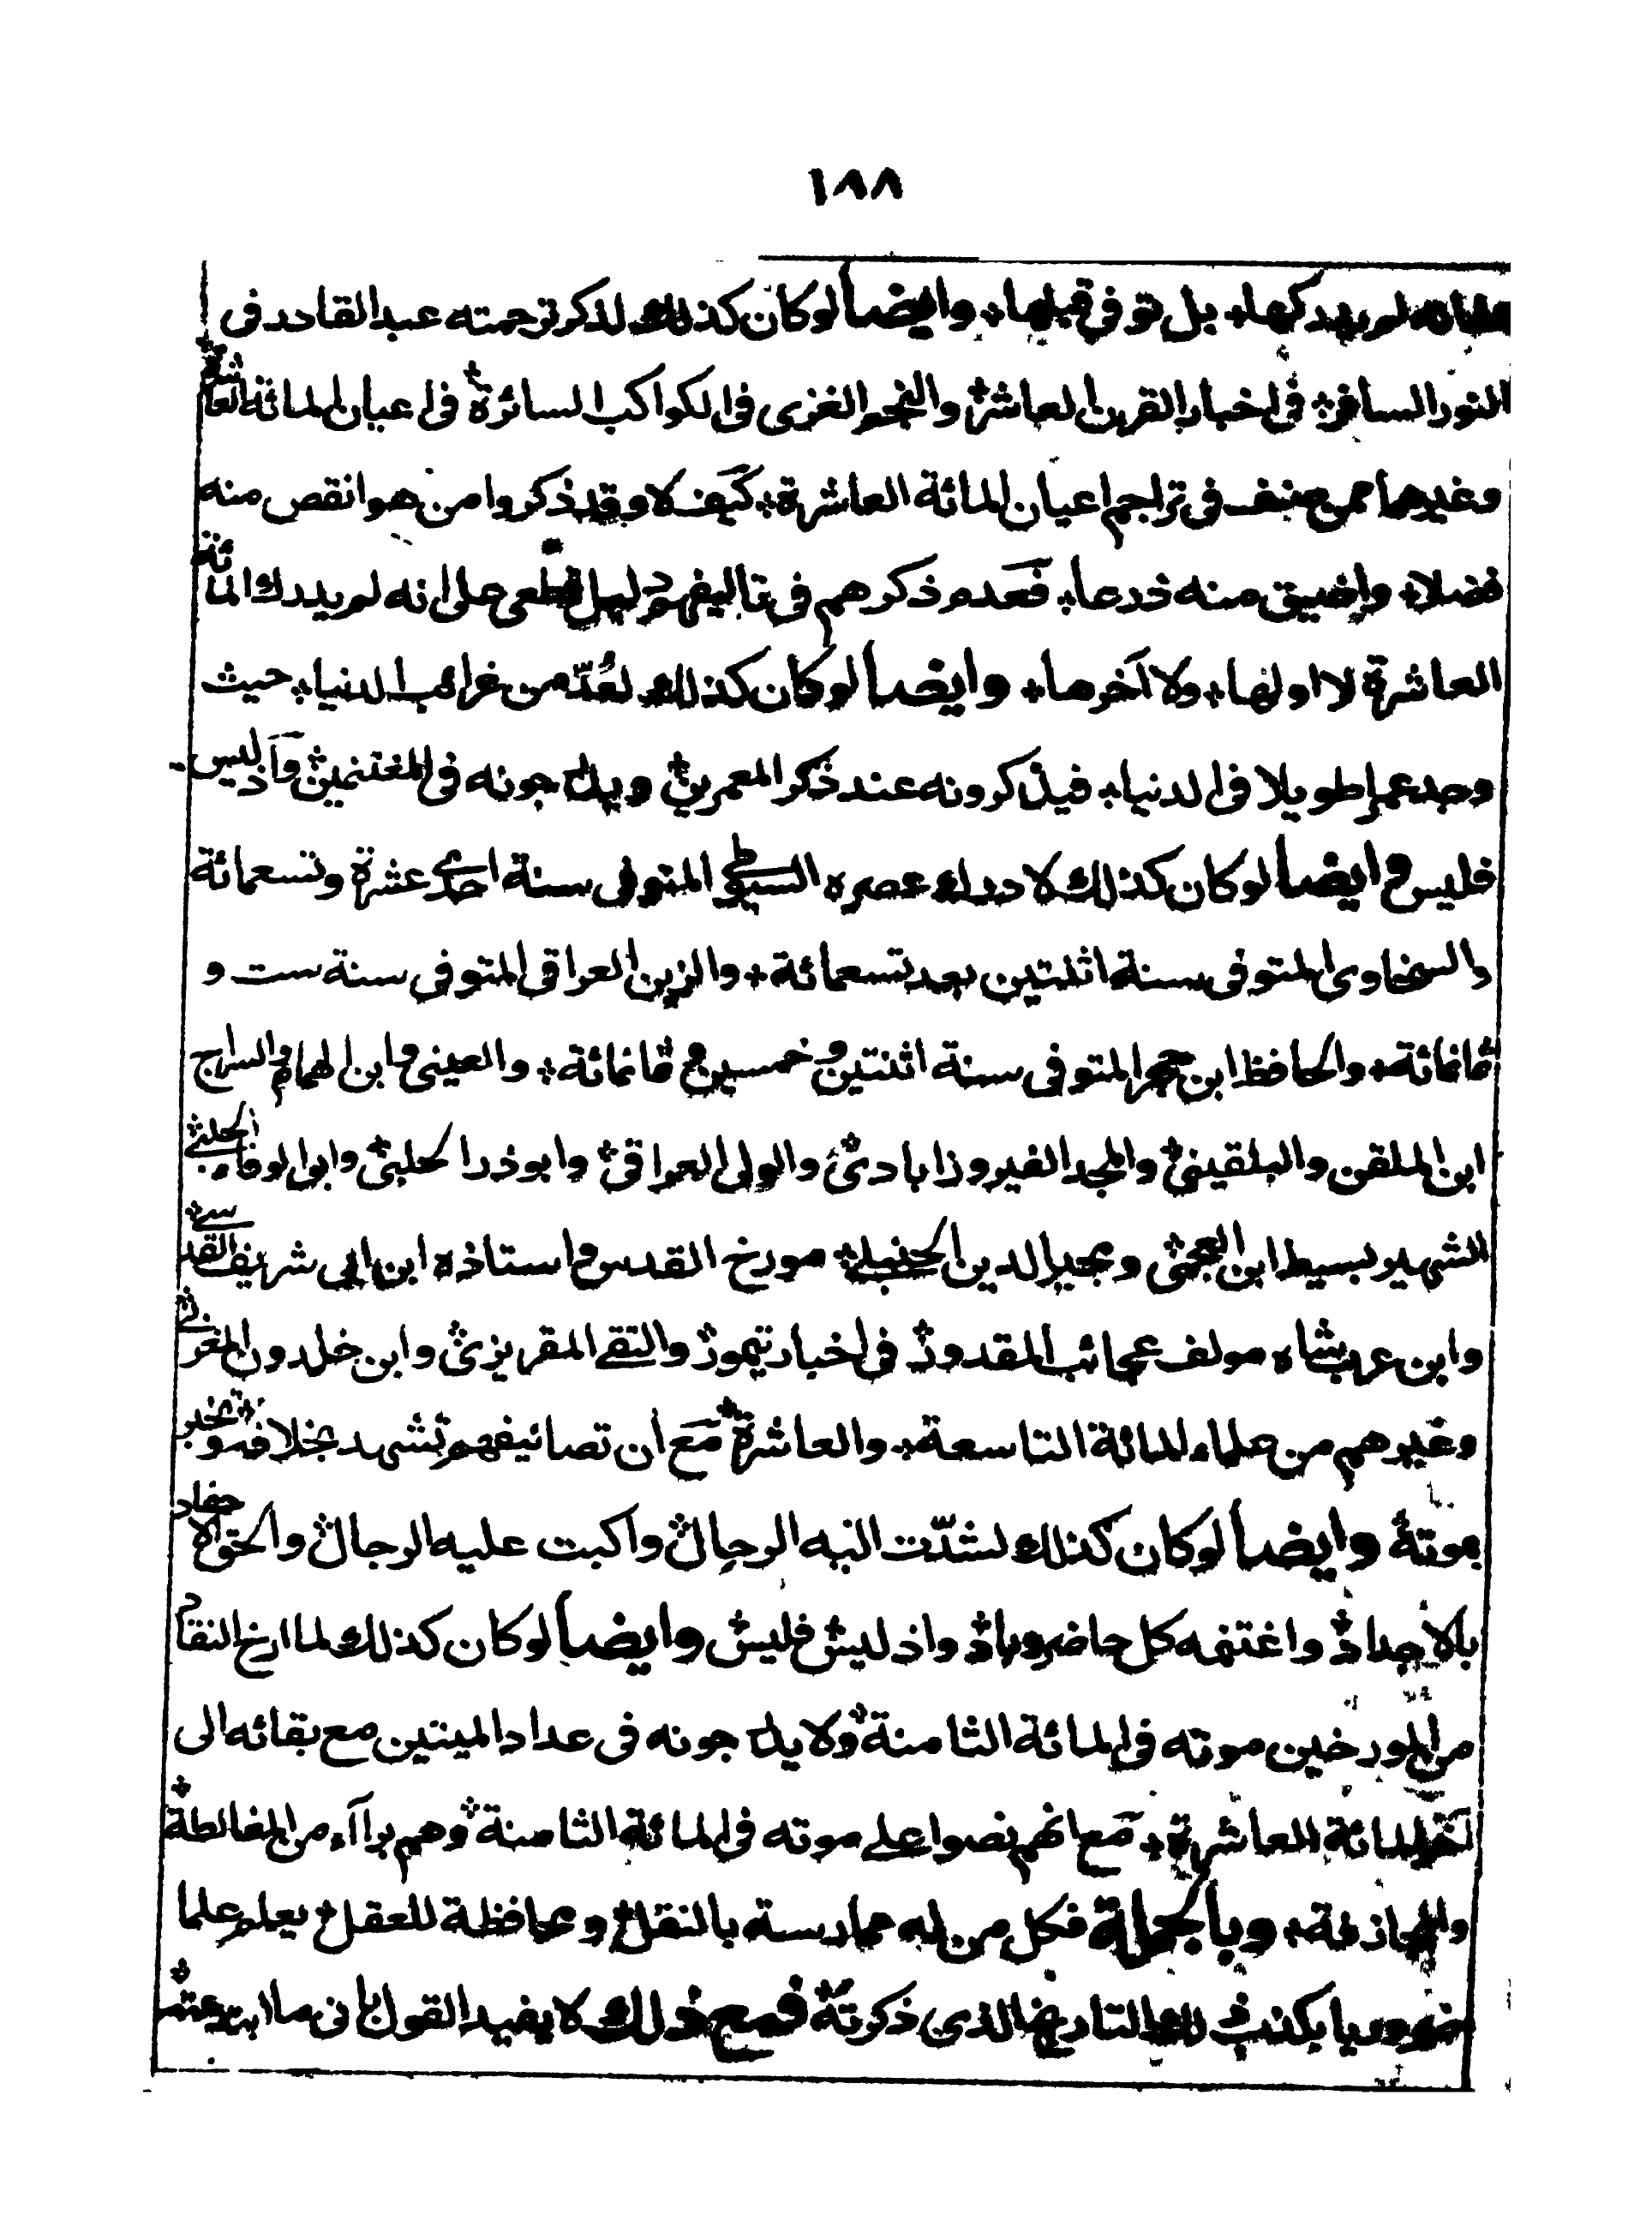 ١٨٨
لم يدركها، بل توفى قبلها، وايضا لو كان كذلك لذكر ترجمته عبد القادر فى
النور السافر، فى اخبار القرن العاشر، والنجم الغزى فى الكواكب السائرة، فى اعيان المائة العاشرة
وغيرهما ممن صنف فى تراجم اعيان المائة العاشرة، كيف لا وقد ذكروا من هو انقص منه
فضلا، واضيق منه ذرعا، فعدم ذكرهم فى تاليفهم دليل قطعى على انه لم يدرك المائة
العاشرة لا اولها، ولا آخرها، وايضا لو كان كذلك لعُدّ من غرائب الدنيا، حيث
وجد عمرا طويلا فى الدنيا، فيذكرونه عند ذكر المعمرين، ويدرجونه فى المغتنمين، واذ ليس
فليس وايضا لو كان كذلك لادرك عصره السيوطى المتوفى سنة احدى عشرة وتسعمائة
والسخاوى المتوفى سنة اثنتين بعد تسعمائة، والزين العراقى المتوفى سنة ست و
ثمانمائة، والحافظ ابن حجر المتوفى سنة اثنتين وخمسين وثمانمائة، والعينى وابن الهمام والسراج
ابن الملقن والبلقينى، والمجد الفيروزابادى، والولى العراقى، وابو ذر الحلبى، وابو الوفاء الحلبى،
الشهير بسبط ابن العجمى، ومجير الدين الحنبلى، مورخ القدس واستاذه ابن ابى شريف القدسى،
وابن عربشاه مولف عجائب المقدور، فى اخبار تيمور، والتقى المقريزى، وابن خلدون المغربى،
وغيرهم من علماء المائة التاسعة، والعاشرة، مع ان تصانيفهم تشهد بخلافه، وتخبر
بموته، وايضا لو كان كذلك لشدّت اليه الرحال، واكبت عليه الرجال، والحق الاحفاد
بالاجداد، واغتنمه كل حاضر وباد، واذ ليس، فليس، وايضا لو كان كذلك لما ارخ النقاد
من المورخين موته فى المائة الثامنة، ولا يدرجونه فى عداد الميتين مع بقائه الى
آخر المائة العاشرة، مع انهم نصوا على موته فى المائة الثامنة، وهم برآء من المغالطة،
والمجازفة، وبالجملة فكل من له ممارسة بالنقل، ومحافظة للعقل، يعلم علما
ضروريا بكذب ذلك التاريخ الذى ذكرته، فمع ذلك لا يفيد القول بانى ما ابتدعته،